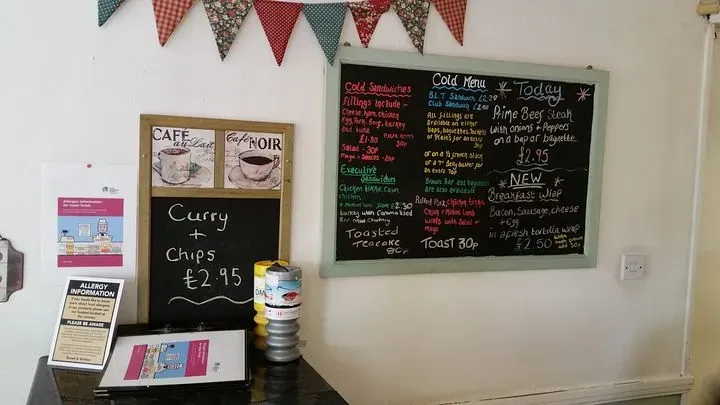 Allergen information
for loose foods
CAFÉ
au Lait
CAFÉ
NOIR
Curry
+
Chips
£2.95
ALLERGY
INFORMATION
PLEASE BE
AWARE
Cold Sandwiches
fillings include:-
Cheese, ham, chicken
Egg, Pork, Beef, turkey
and tuna
£1.80
Salad - 30p
Mayo + Sauces - 20p
Executive
Chicken tikka, Cajun
chicken,
2.30
turkey with
Toasted
Teacake
80p
Cold Menu
B.L.T Sandwich £2.20
Club Sandwich
All fillings are
available on either
baps, baguettes,
or on a ½ french stick
or a 7" Benjybuster for
an extra 30p
Brown Bar and baguettes
are also available
Pulled Pork, Chicken tikka
Cajun + minted Lamb
wraps with Salad +
mayo
Toast 30p
Today
Prime Beef Steak
with onions + Peppers
on a bap or baguette
£2.95
NEW
Breakfast Wrap
Bacon, Sausage, cheese
+ Egg
in a fresh tortilla wrap
£2.50